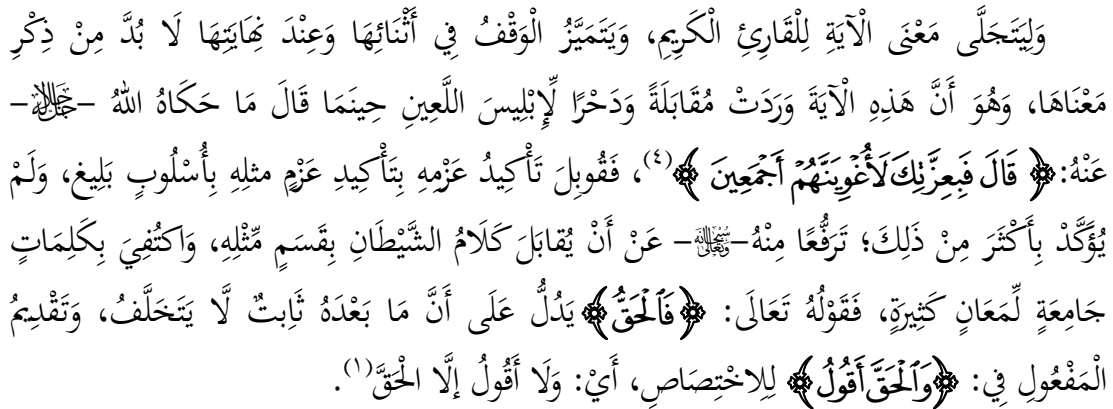 وَلِيَتَجَلَّى مَعْنَى الْآيَةِ لِلْقَارِئِ الْكَرِيمِ، وَيَتَمَيَّزُ الْوَقْفُ فِي أَثْنَائِهَا وَعِنْدَ نِهَايَتِهَا لَا بُدَّ مِنْ ذِكْرِ
مَعْنَاهَا، وَهُوَ أَنَّ هَذِهِ الْآيَةَ وَرَدَتْ مُقَابَلَةً وَدَحْرًا لِّإِبْلِيسَ اللَّعِينِ حِينَمَا قَالَ مَا حَكَاهُ اللهُ –جَلَّ جَلَالُهُ–
عَنْهُ: ﴿ قَالَ فَبِعِزَّتِكَ لَأُغْوِيَنَّهُمْ أَجْمَعِينَ ﴾(٤)، فَقُوبِلَ تَأْكِيدُ عَزْمِهِ بِتَأْكِيدِ عَزْمٍ مثلِهِ بِأُسْلُوبٍ بَلِيغ، وَلَمْ
يُؤَكَّدْ بِأَكْثَرَ مِنْ ذَلِكَ؛ تَرَفُّعًا مِنْهُ –سُبْحَانَهُ وَتَعَالَى– عَنْ أَنْ يُقابَلَ كَلَامُ الشَّيْطَانِ بِقَسَمٍ مِّثْلِهِ، وَاكتُفِيَ بِكَلِمَاتٍ
جَامِعَةٍ لِّمَعَانٍ كَثِيرَةٍ، فَقَوْلُهُ تَعَالَى: ﴿فَٱلْحَقُّ﴾ يَدُلُّ عَلَى أَنَّ مَا بَعْدَهُ ثَابِتٌ لَّا يَتَخَلَّفُ، وَتَقْدِيمُ
الْمَفْعُولِ فِي: ﴿وَٱلْحَقَّ أَقُولُ﴾ لِلِاخْتِصَاصِ، أَيْ: وَلَا أَقُولُ إلَّا الْحَقَّ(١).